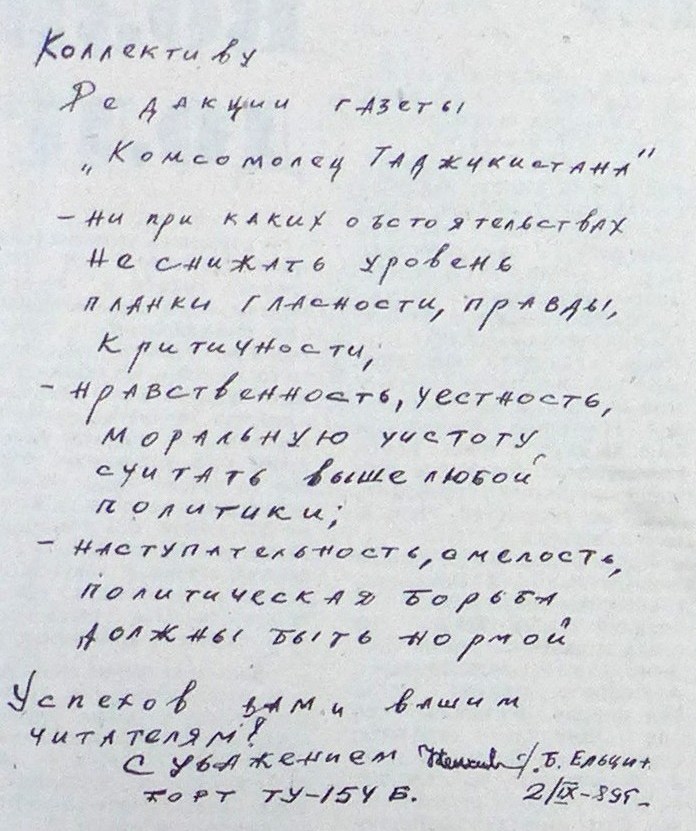 Коллективу
Редакции газеты
„Комсомолец Таджикистана"
– ни при каких обстоятельствах
не снижать уровень
планки гласности, правды,
критичности;
– нравственность, честность,
моральную чистоту
считать выше любой
политики;
– наступательность, смелость,
политическая борьба
должны быть нормой
Успехов вам и вашим
читателям!
С уважением /. Б. Ельцин.
борт ТУ-154 Б. 2/IX-89г.